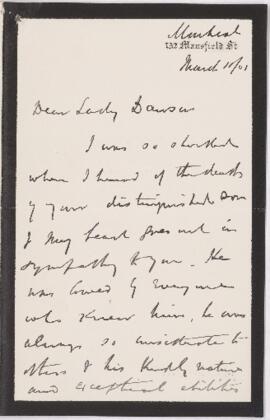 Montreal
132 Mansfield St
March 10/01
Dear Lady Dawson
I was so shocked
when I heard of the death
of your distinguished son
& my heart goes out in
sympathy to you. He
was loved by everyone
who knew him, he was
always so considerate to
others & his kindly nature
and exceptional abilities